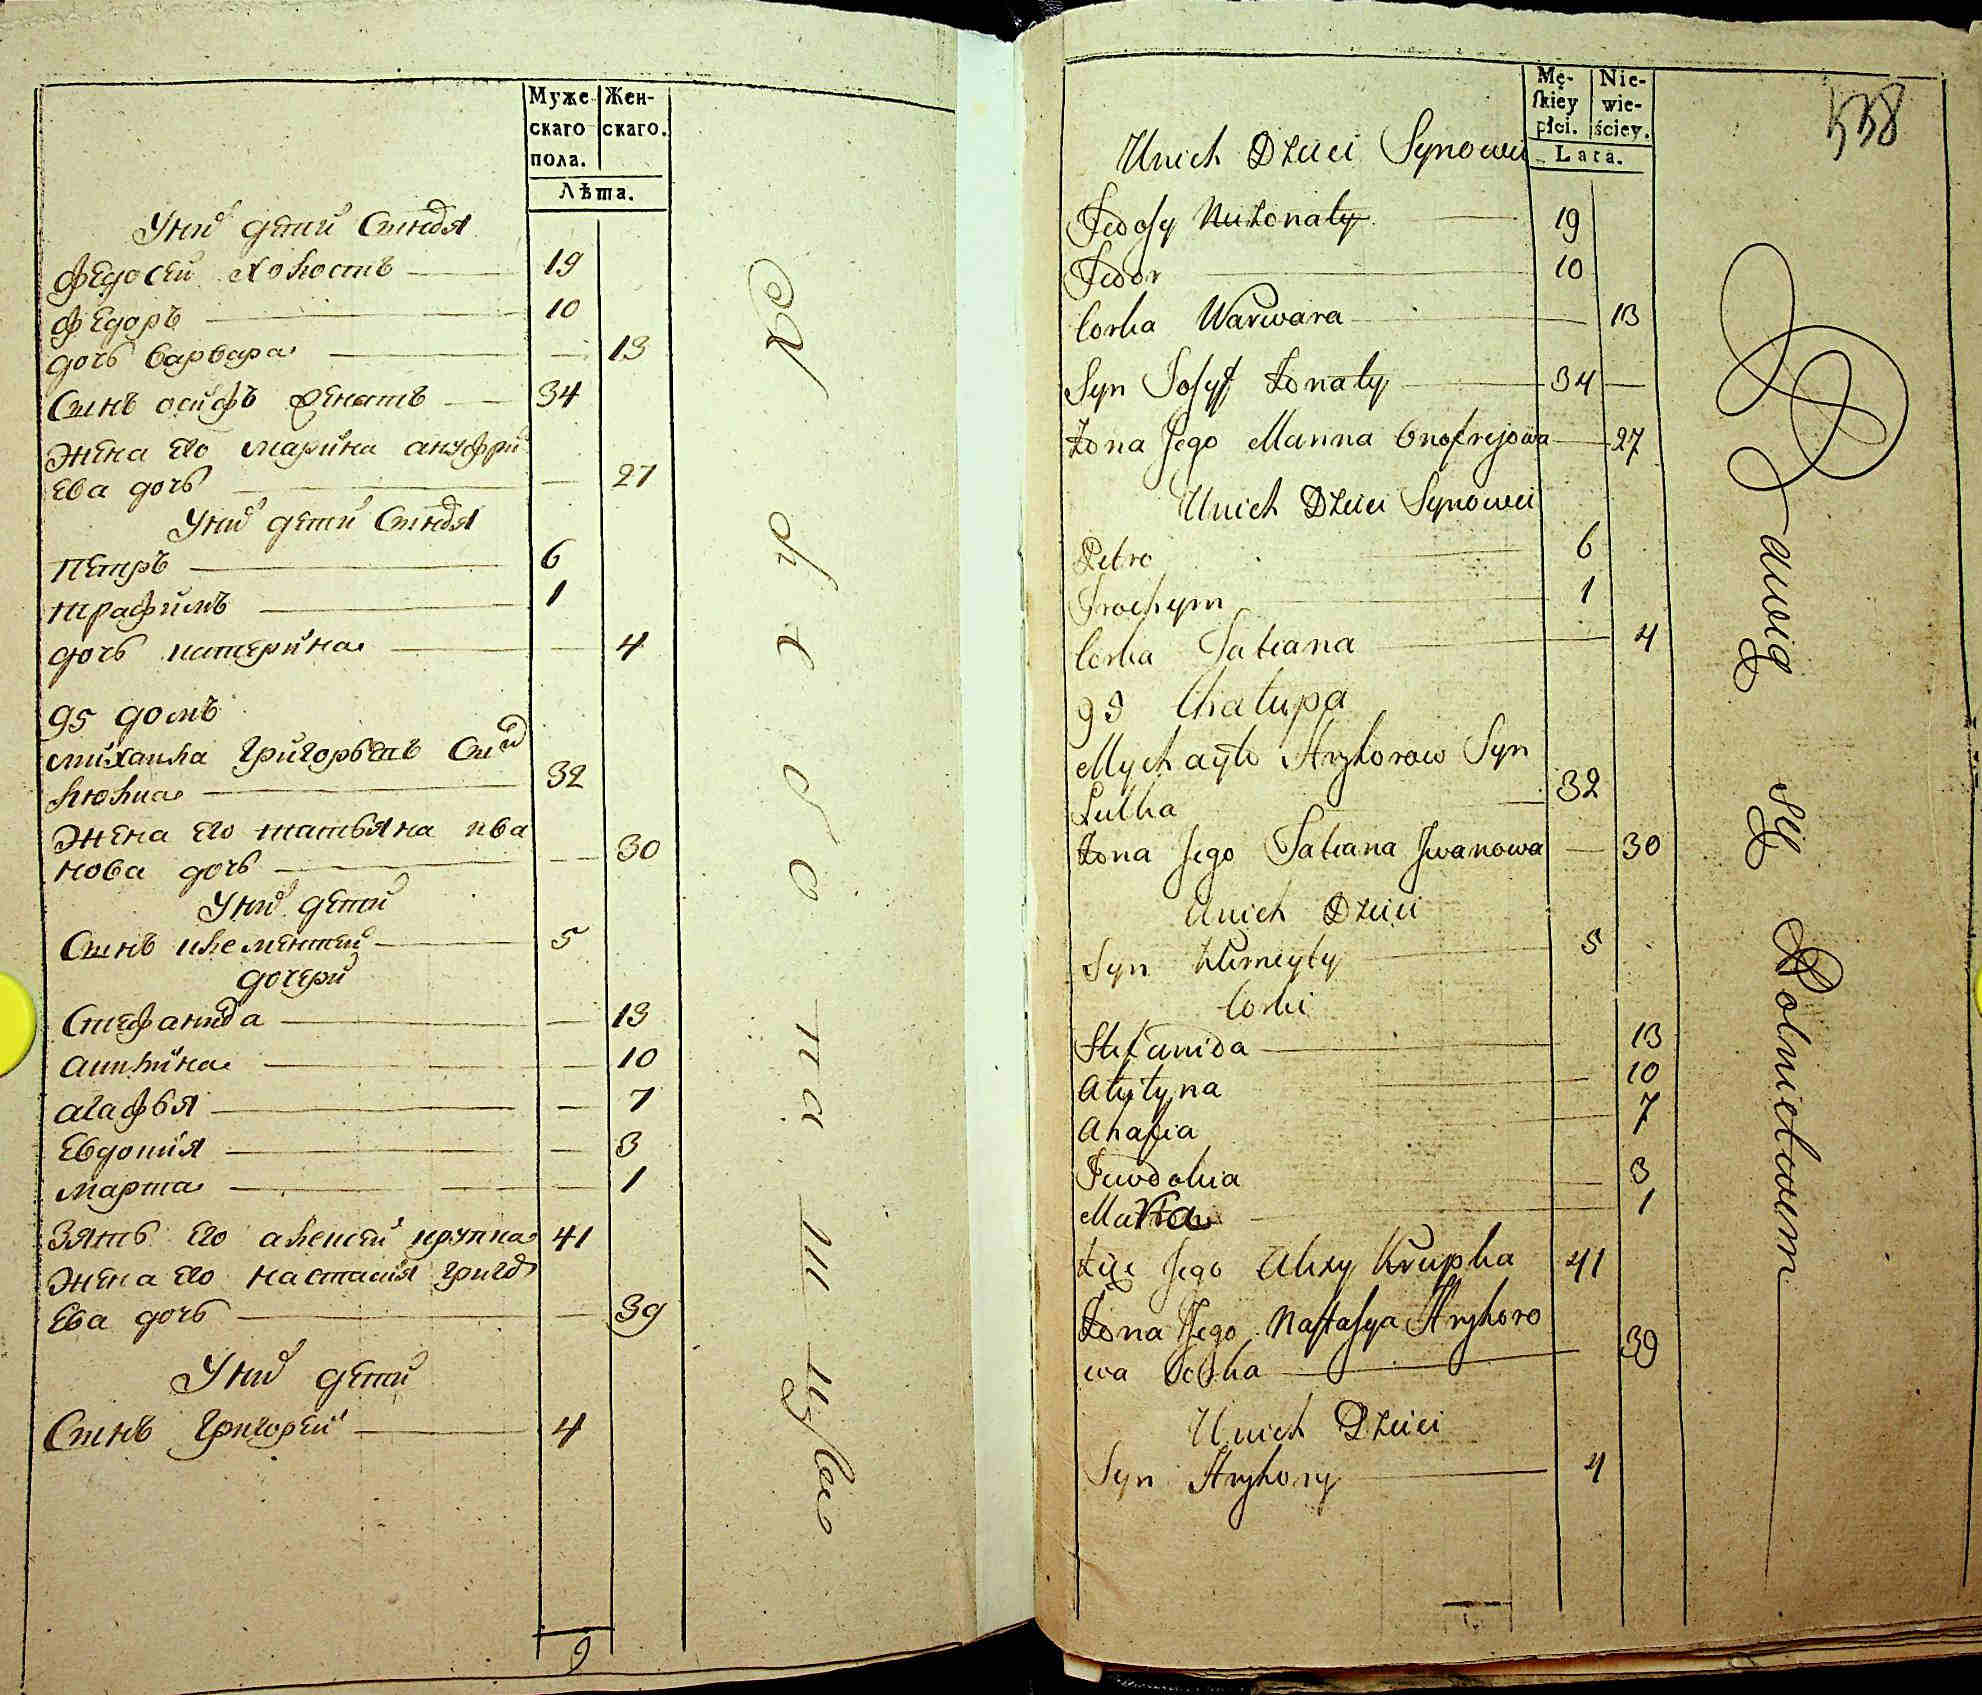 Муже
скаго
пола.
Жен-
скаго.
Лѣта.
У них дети Сындя
Федосей холостъ 19
Федоръ 10
дочь варвара 13
Сынъ осифъ женатъ 34
Жена его марина ануфри
ева дочь 27
У них дети Сындя
Петръ 6
трафимъ 1
дочь катерина 4
95 домъ
михайла Григорьевъ Сын
люлка 32
Жена его татьяна ива
нова дочь 30
У них дети
Сынъ клементей 5
дочери
Стефанида 13
акилина 10
агафья 7
Евдокия 3
марта 1
Зять его алексей крупка 41
Жена его настасия григор
ева дочь 39
У них дети
Сынъ Григорей 4
9
Mę-
ſkiey
płci.
Nie-
wie-
ściey.
Lata.
538
Unich Dzieci Synowei
Fedoſy Nieżonaty 19
Fedor 10
Corka Warwara 13
Syn Joſyf żonaty 34
żona Jego Marina Onofrejowa 27
Unich Dzieci Synowei
Petro 6
Trochym 1
Corka Tatiana 4
95 Chałupa
Mychayło Hryhorow Syn
Lulka 32
żona Jego Tatiana Jwanowa 30
Unich Dzieci
Syn Klimeyty 5
Corki
Stefanida 13
Akylyna 10
Ahafia 7
Jewdokia 3
Marta 1
Zięć Jego Alexy Krupka 41
żona Jego Naſtaſya Hryhoro
wa Corka 39
Unich Dzieci
Syn Hryhory 4
Bawią się Rolnictwem